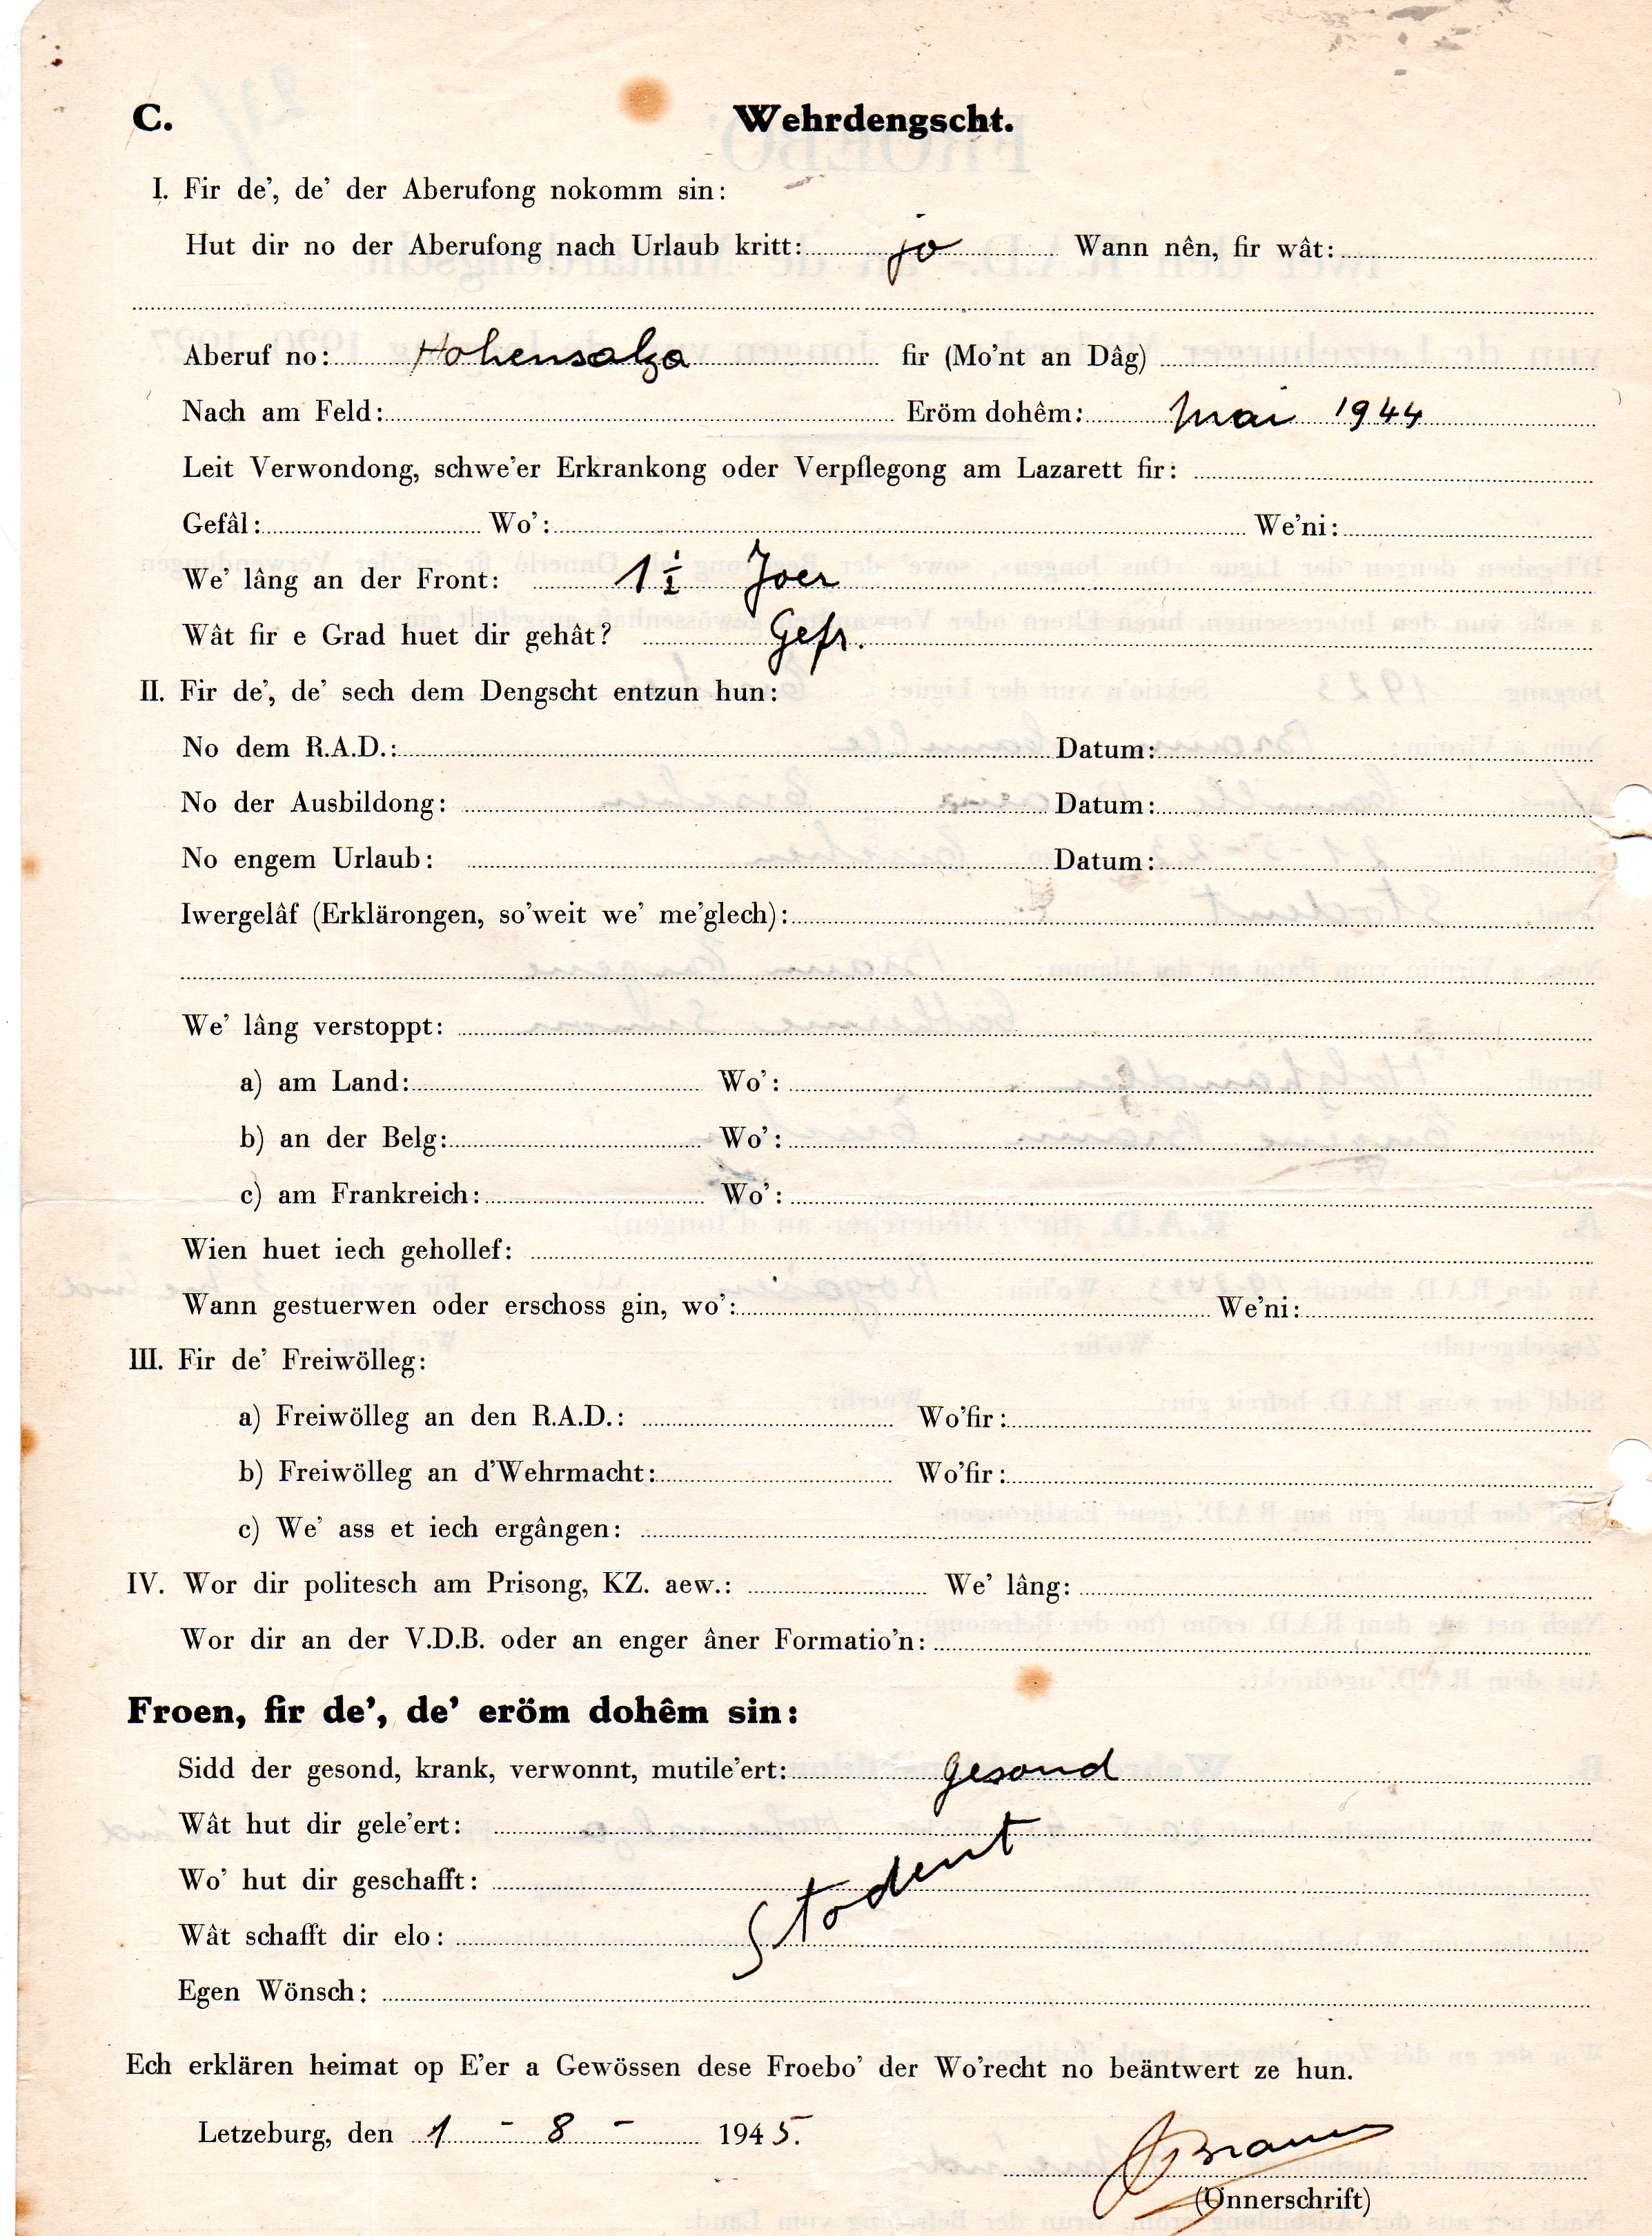 C. Wehrdengscht.
I. Fir de’, de’ der Aberufong nokomm sin:
Hut dir no der Aberufong nach Urlaub kritt: jo Wann nên, fir wât:
Aberuf no: Hohensalza fir (Mo’nt an Dâg)
Nach am Feld: Eröm dohêm: Mai 1944
Leit Verwondong, schwe’er Erkrankong oder Verpflegong am Lazarett fir:
Gefâl: Wo’: We’ni:
We’ lâng an der Front: 1½ Joer
Wât fir e Grad huet dir gehât? Gefr.
II. Fir de’, de’ sech dem Dengscht entzun hun:
No dem R.A.D.: Datum:
No der Ausbildong: Datum:
No engem Urlaub: Datum:
Iwergelâf (Erklärongen, so’weit we’ me’glech):
We’ lâng verstoppt:
a) am Land: Wo’:
b) an der Belg: Wo’:
c) am Frankreich: Wo’:
Wien huet iech gehollef:
Wann gestuerwen oder erschoss gin, wo’: We’ni:
III. Fir de’ Freiwölleg:
a) Freiwölleg an den R.A.D.: Wo’fir:
b) Freiwölleg an d’Wehrmacht: Wo’fir:
c) We’ ass et iech ergângen:
IV. Wor dir politesch am Prisong, KZ. aew.: We’ lâng:
Wor dir an der V.D.B. oder an enger âner Formatio’n:
Froen, fir de’, de’ eröm dohêm sin:
Sidd der gesond, krank, verwonnt, mutile’ert: gesond
Wât hut dir gele’ert:
Wo’ hut dir geschafft: Stodent
Wât schafft dir elo:
Egen Wönsch:
Ech erklären heimat op E’er a Gewössen dese Froebo’ der Wo’recht no beäntwert ze hun.
Letzeburg, den 1 - 8 - 1945.
Braun
(Önnerschrift)